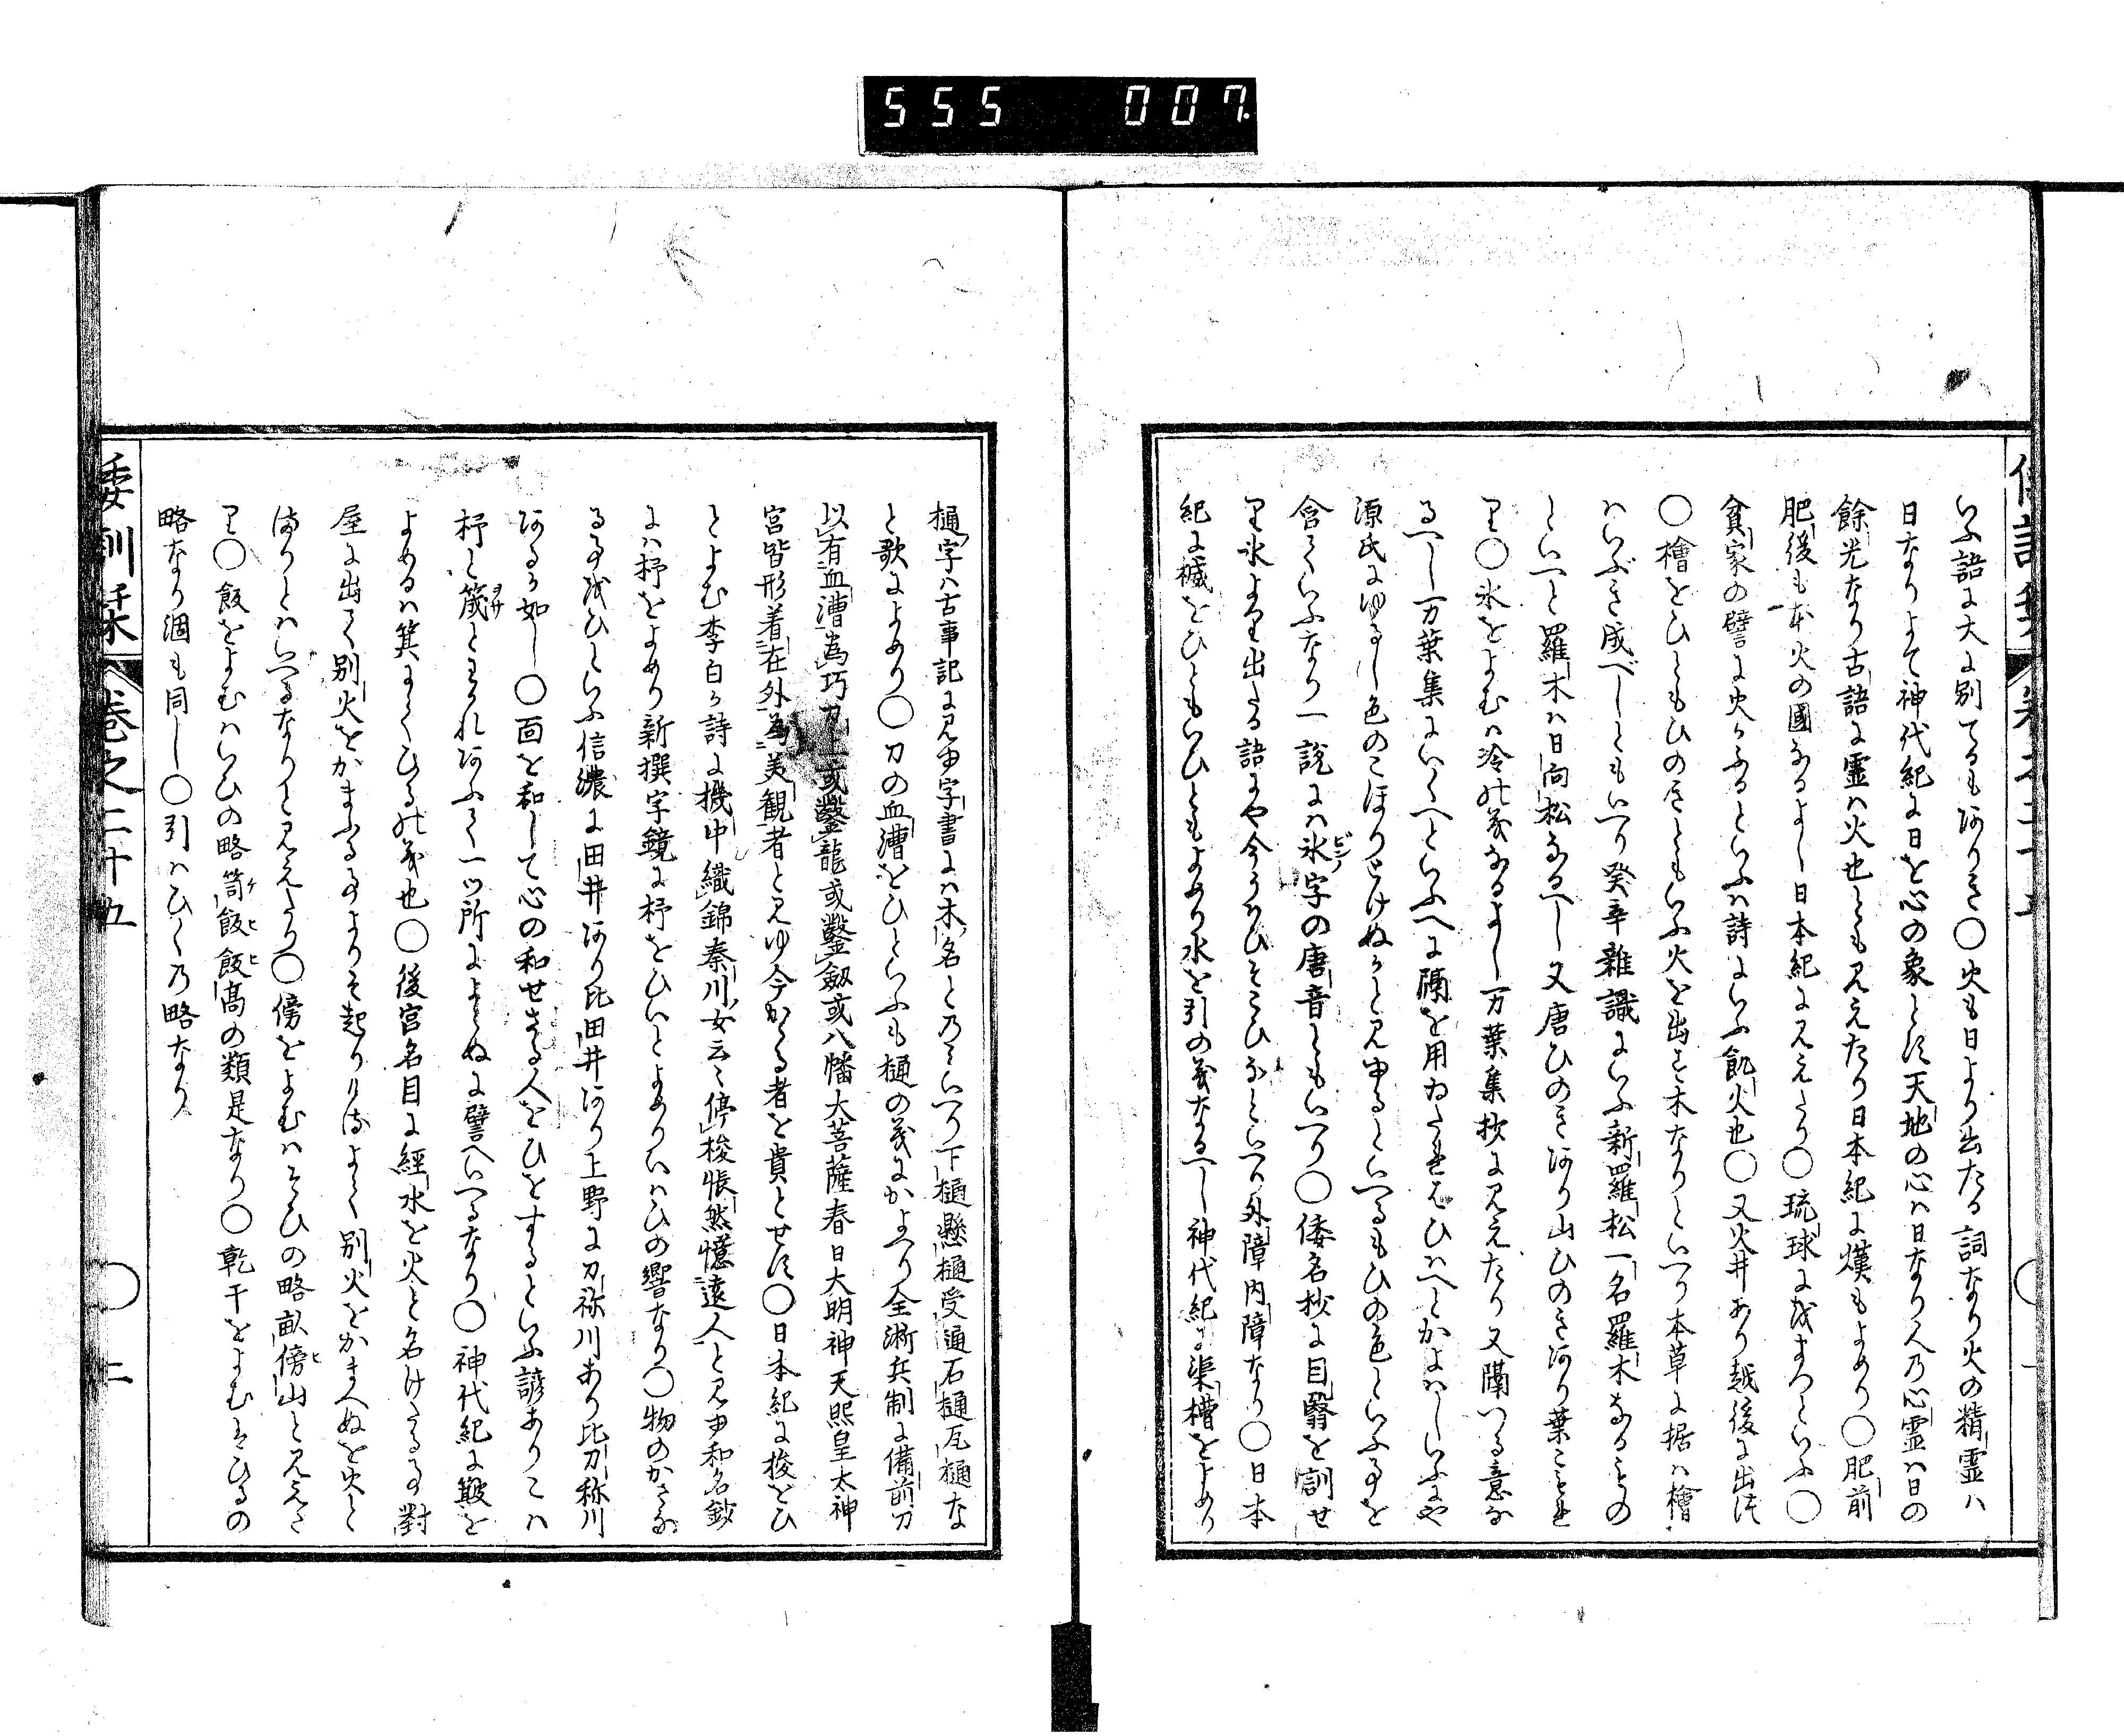 555 007
いふ語に大に別てるもありき〇火も日より出たる詞なり火の精霊ハ
日なりよて神代紀に日を心の象とす天地の心ハ日なり人乃心霊ハ日の
餘光なり古語に霊ハ火也とも見えたり日本紀に熯もよめり〇肥前
肥後も本火の國なるよし日本紀に見えたり〇琉球にまつといふ〇
貧家の譬に火がふるといふハ詩にいふ飢火也〇又火井あり越後に出す
〇檜をひともひの木ともいふ火を出す木なりといへり本草に据ハ檜
ハいぶき成べしともいへり癸辛雑識にいふ新羅松一名羅木なるもの
といへと羅木ハ日向松なるへし又唐ひのきあり山ひのきあり葉こまれ
り〇氷をよむハ冷の義なるよし万葉集抄に見えたり又闌いる意な
るへし万葉集にいくへといふへに隔を用ゐたれはひハへとかよハしいふにや
源氏にゆるし色のこほりとけぬかと見ゆるといへるもひの色といふ事を
含ていふなり一説にハ氷字の唐音ともいへり〇倭名抄に目翳を訓せ
り氷より出たる語にや今うはひそこひなといへり外障内障なり〇日本
紀に楲をひともいひともよめり水を引の義なるへし神代紀に渠槽をよめり
樋字ハ古事記に見ゆ字書にハ木名とのミいへり下樋懸樋受通石樋瓦樋な
と歌によめり〇刀の血漕をひといふも樋の義にかよへり全浙兵制に備前刀
以有血漕為巧刀上或鑿龍或鑿劔或八幡大菩薩春日大明神天照皇太神
宮皆形着在外為美観者と見ゆ今かくる者を貴とせす〇日本紀に梭をひ
とよむ李白か詩に機中織錦秦川女云々停梭悵然憶遠人と見ゆ和名鈔
にハ杼をよめり新撰字鏡に杼をひいとよめりいハひの響なり〇物のかさな
る事をひといふ信濃に田井あり比田井あり上野に刀祢川あり比刀祢川
あるか如し〇面を和して心の和せさる人をひをするといふ諺ありこハ
杼と筬とわかれあふて一ツ所によらぬに譬へいへるなり〇神代紀に簸を
よめるハ箕にてひるの義也〇後宮名目に經水を火と名けたる事對
屋に出て別火をかまふる事よりそ起りけるよく別火をかまへぬを火と
ありとハいへるなりと見えたり〇傍をよむハそひの略畝傍山と見えた
り〇飯をよむハいひの略笥飯飯高の類是なり〇乾干をよむもひるの
略なり涸も同し〇引ハひく乃略なり
倭訓栞 巻之二十五 〇 二